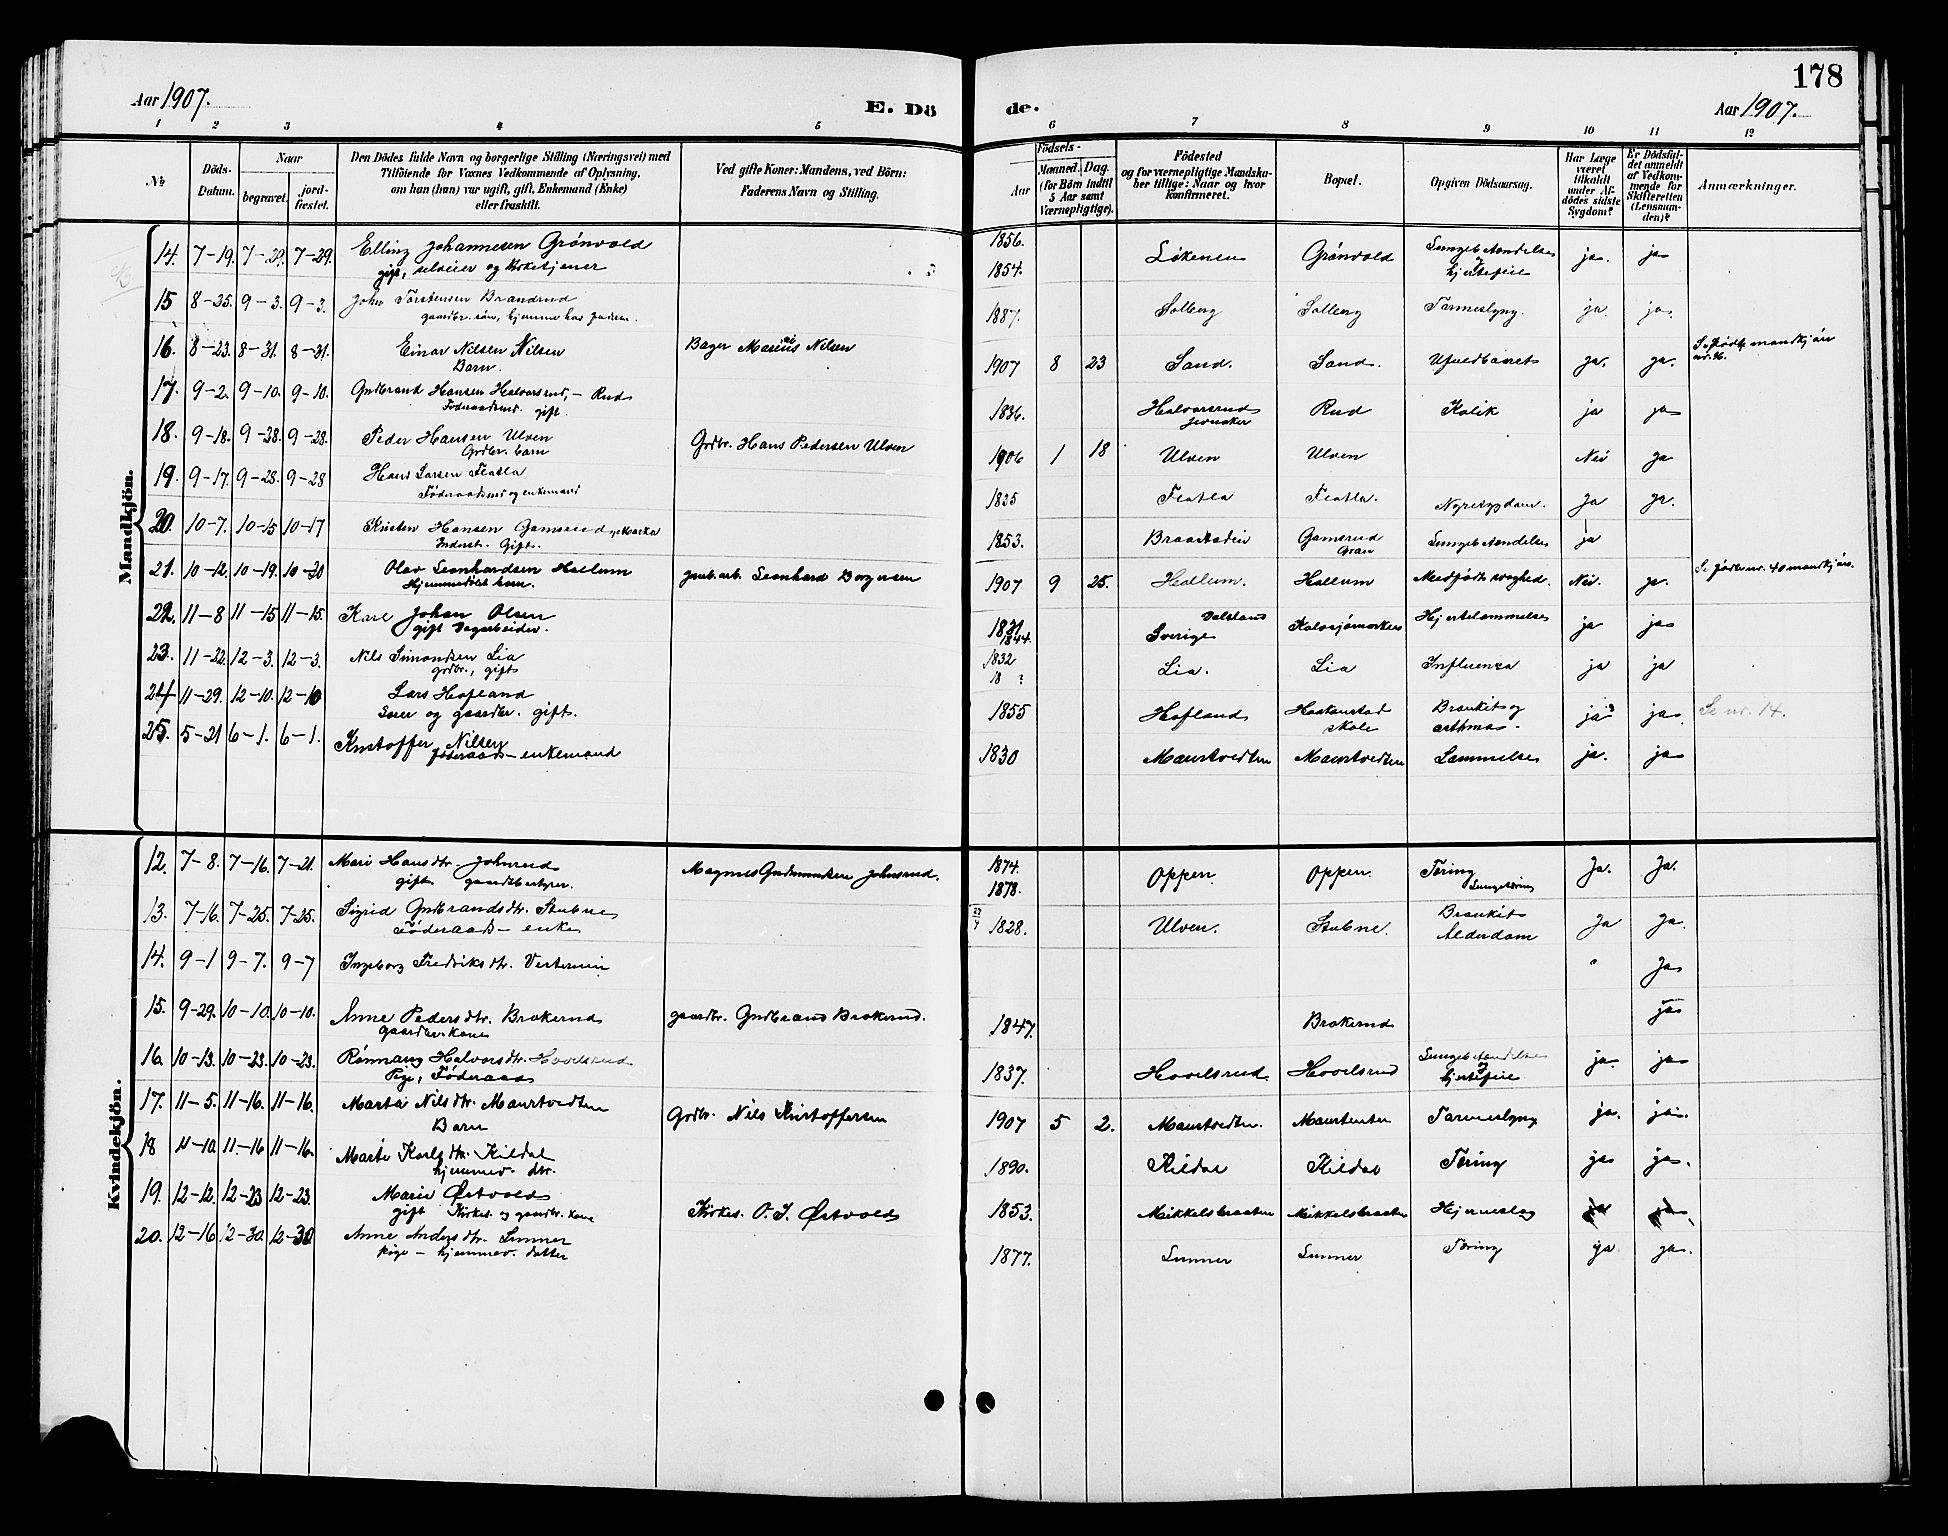 178
Aar 1907. E. Dö de. Aar 1907.
1 2 3 4 5 6 7 8 9 10 11 12
№ Döds-Datum. Naar begravet. jord-fæstet. Den Dödes fulde Navn og borgerlige Stilling (Næringsvei) med Tilföiende for Voxnes Vedkommende af Oplysning, om han (hun) var ugift, gift, Enkemand (Enke) eller fraskilt. Ved gifte Koner: Mandens, ved Börn: Faderens Navn og Stilling. Födsels- Aar Maaned. Dag. (for Börn indtil 5 Aar samt Værnepligtige). Födested og for værnepligtige Mandskaber tillige: Naar og hvor konfirmeret. Bopæl. Opgiven Dödsaarsag. Har Læge været tilkaldt under Afdödes sidste Sygdom? Er Dödsfaldet anmeldt af Vedkommende for Skifteretten (Lensmanden)? Anmærkninger.
Mandkjön.
14. 7-19. 7-29. 7-29. Elling Johannesen Grönvold 1856. Lökenen Grönvold Lungebetændelse ja. ja
gift, selveier og kirketjener 1854. og hjertefeil
15 8-25. 9-3. 9-3. John Torstensen Brandrud 1887. Solberg Solberg Tarmeslyng. ja. ja.
gaardbr. sön, hjemme hos faderen.
16. 8-23. 8-31. 8-31. Einar Nilsen Nilsen Bager Marius Nilsen 1907 8 23 Sand. Sand. Ufuldbaaret ja. ja. Se födte mandkjön nr. 36.
Barn.
17. 9-2. 9-10. 9-10. Gudbrand Hansen Halvorsrud, - Rud 1836. Halvorsrud Jevnaker Rud Kolik ja ja
Föderaadsmd. gift.
18. 9-18. 9-28. 9-28. Peder Hansen Ulven Grdbr. Hans Pedersen Ulven 1906 1 18 Ulven Ulven Nei Ja
Grdbr. barn
19. 9-17. 9-28. 9-28 Hans Larsen Flatla 1835 Flatla Flatla. Nyresygdom. Ja ja.
Föderaadsmd og enkemand
20. 10-7. 10-15 10-17 Kristen Hansen Gamsrud 1853. Braastaden Gamsrud Gran Lungebetændelse ja
Inderst. Gift.
21. 10-12. 10-19. 10-20 Olav Leonhardsen Hallum grub. arb. Leonhard Borgersen 1907 9 25. Hallum. Hallum Medfödt svaghed. Nei. ja. Se födte nr. 40 mandkjön.
Hjemmedöbt barn.
22. 11-8 11-15 11-15. Karl Johan Olsen 1831 1844. Dalsland Sverige Kalvsjömarken Hjertelammelse ja ja
gift Dagarbeider.
23. 11-22. 12-3. 12-3. Nils Simonsen Lia 1832 18 ? Lia. Lia Influenza ja ja
grdbr., gift
24 11-29. 12-10. 12-10 Lars Hofland 1855 Hofland Haakenstad skole Bronkit og asthma. ja ja. Se nr. 14.
Lærer og gaardbr. gift.
25. 5-21 6-1. 6-1. Kristoffer Nilsen 1830 Maurtvedten Maurtvedten Lammelse ja. ja
föderaads - enkemand
Kvindekjön.
12. 7-8. 7-16. 7-21. Mari Hansdtr. Johnsrud Magnus Gudmundsen Johnsrud. 1874. Oppen. Oppen. Tæring Ja. Ja.
gift gaardbestyrer. 1878. Lungetæring
13. 7-16. 7-25. 7-25. Sigrid Gudbrandsdtr. Stubne 27/4 1828. Ulven. Stubne. Bronkit Ja Ja.
Föderaads - enke Alderdom
14. 9-1 9-7. 9-7 Ingeborg Fredriksdtr. Vestermin Ja
15. 9-29. 10-10. 10-10. Anne Pedersdtr. Brokerud gaardbr. Gudbrand Brokerud. 1847. Brokerud ja
gaardbr. kone
16. 10-13. 10-23. 10-23. Rönnaug Halvorsdtr. Hovelsrud 1837. Hovelsrud. Hovelsrud Lungebetændelse og hjertefeil ja. ja.
Pige, Föderaad
17. 11-5. 11-16. 11-16. Marta Nilsdtr. Maurtvedten Grdbr. Nils Kristoffersen 1907 5 2. Maurtvedten. Maurtveten Tarmeslyng ja. ja.
Barn
18 11-10. 11-16 11-16. Marte Karlsdtr. Kildal 1890. Kildal Kildal Tæring ja ja.
hjemmev. dtr.
19. 12-12. 12-23 12-23. Marie Östvold Kirkes. O. I. Östvold 1853. Mikkelsbraaten Mikkelsbraaten Hjerneslag ja ja.
gift Kirkes. og gaardbr. kone
20. 12-16 12-30. 12-30 Anne Andersdtr. Lunner 1877. Lunner Lunner Tæring ja ja.
pige - hjemmev. datter